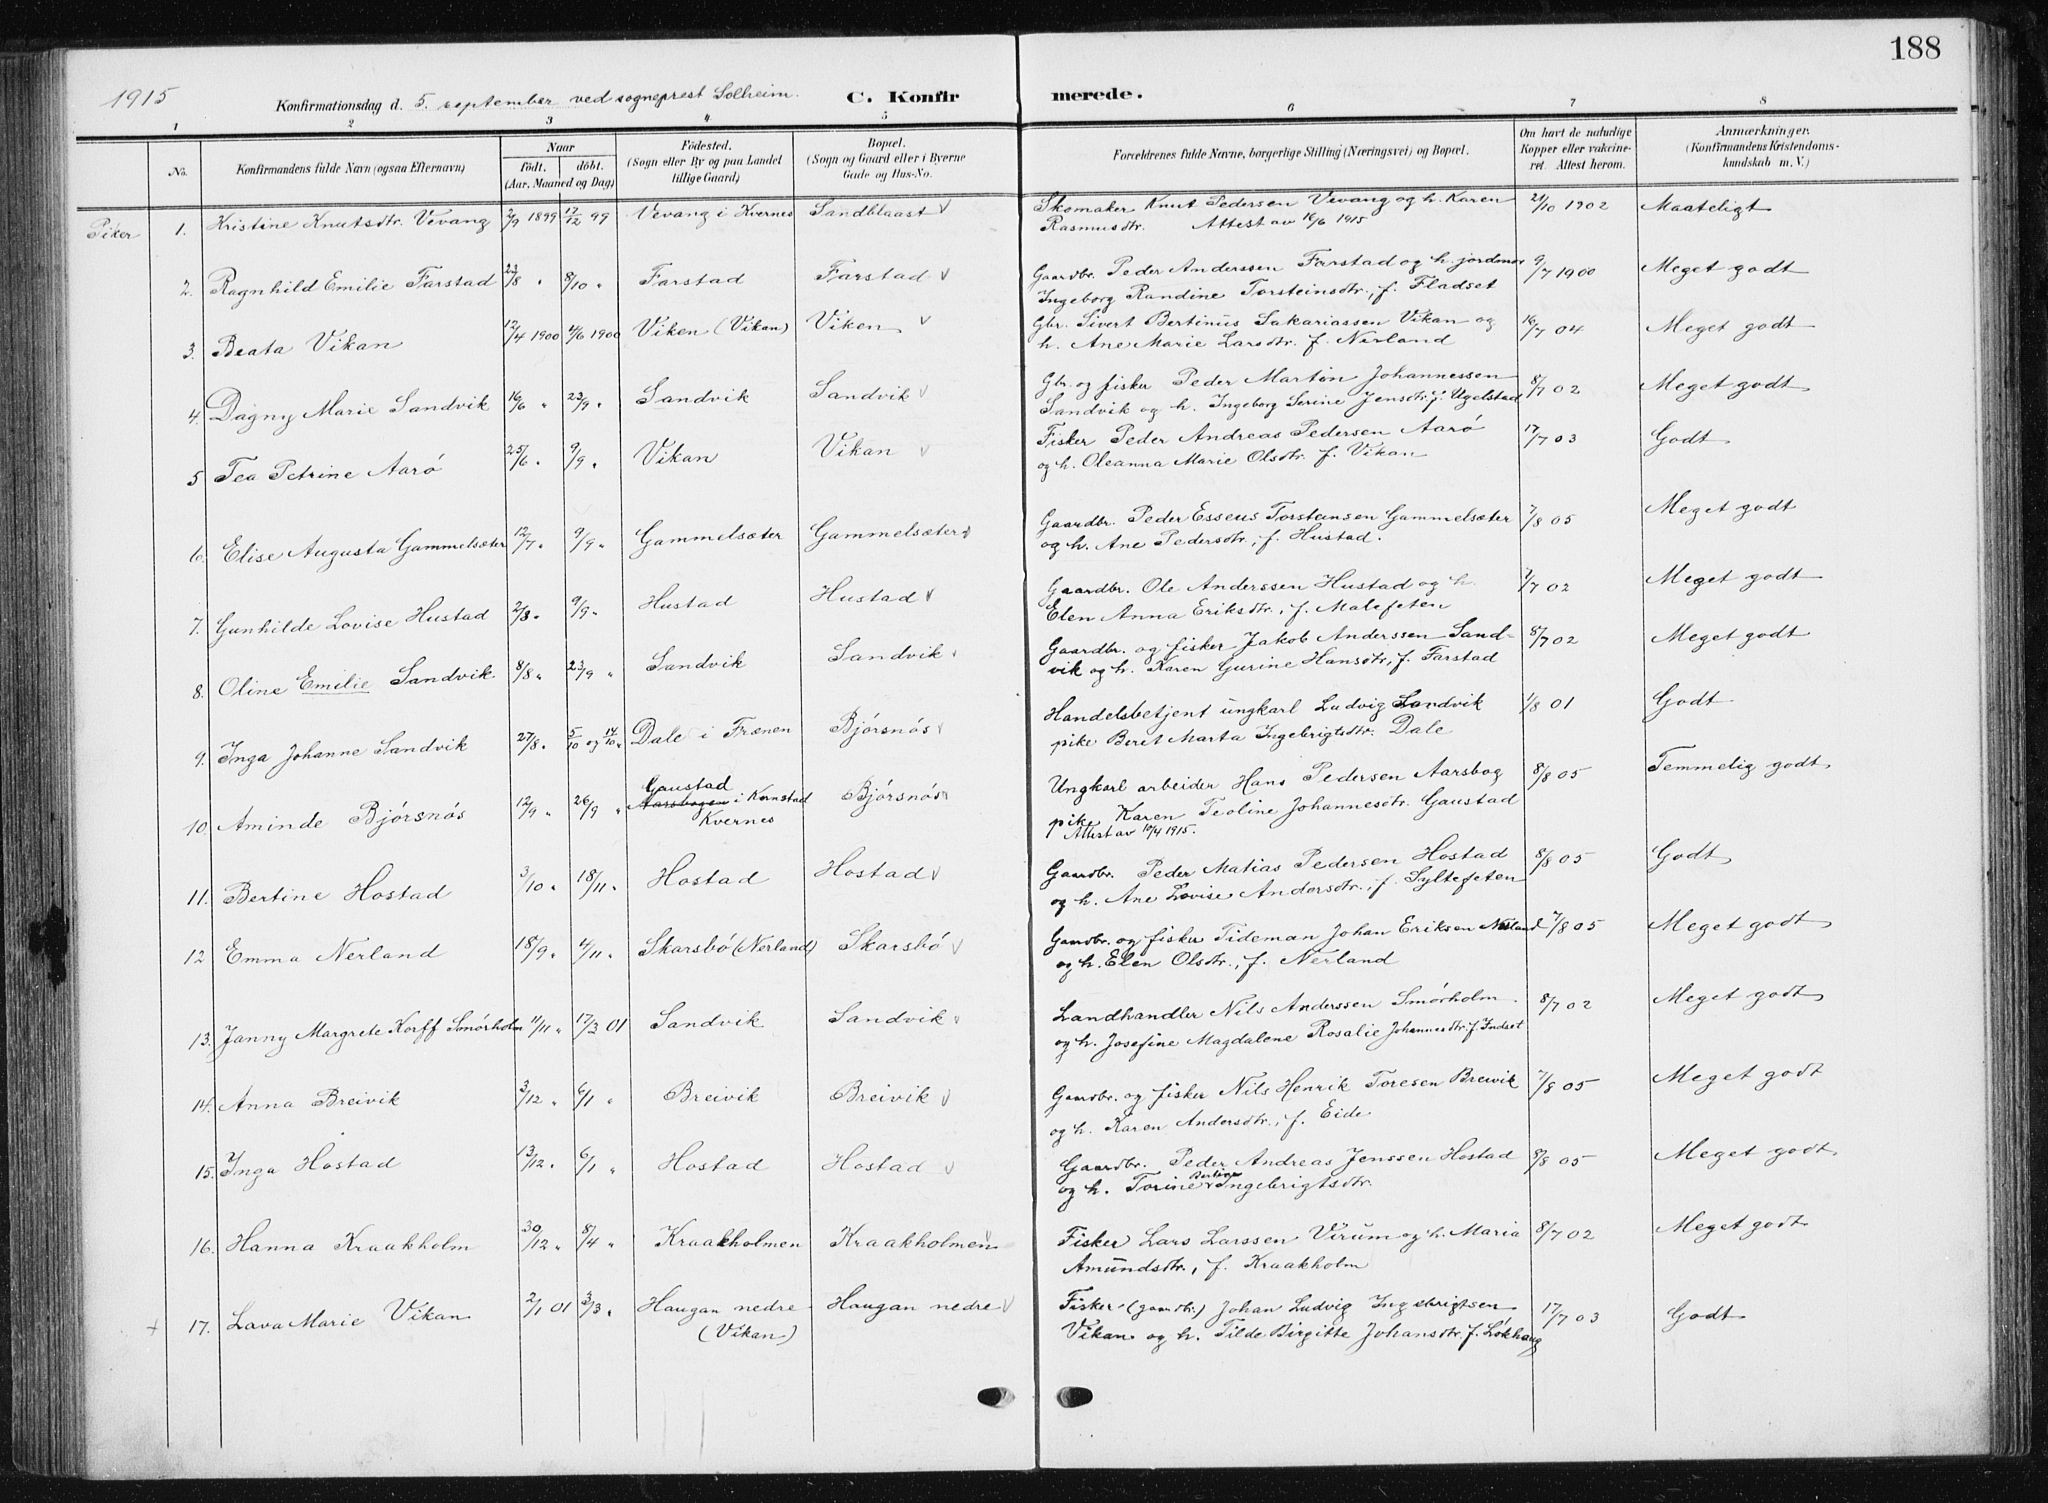 188
1915 Konfirmationsdag d. 5. september ved sogneprest Solheim. C. Konfirmerede.
1 2 3 4 5 6 7 8
No. Konfirmandens fulde Navn (ogsaa Efternavn) Naar født. døbt. (Aar, Maaned og Dag) Fødested. (Sogn eller By og paa Landet tillige Gaard) Bopæl. (Sogn og Gaard eller i Byerne Gade og Hus-No. Forældrenes fulde Navne, borgerlige Stilling (Næringsvei) og Bopæl. Om havt de naturlige Kopper eller vakcineret. Attest herom. Anmærkninger. (Konfirmandens Kristendomskundskab m. V.)
Piker 1. Kristine Knutsdtr. Vevang 2/9 1899 17/12 99 Vevang i Kvernes Sandblaast Skomaker Knut Pedersen Vevang og h. Karen 21/10 1902 Maateligt
Rasmusdtr. Attest av 16/6 1915
2. Ragnhild Emilie Farstad 23/8 " 8/10 " Farstad Farstad Gaardbr. Peder Anderssen Farstad og h. jordmor 9/7 1900 Meget godt
Ingeborg Randine Torsteinsdtr., f. Fladset
3. Beata Vikan 12/4 1900 4/6 1900 Viken (Vikan) Viken Gbr. Sivert Bertinus Sakariassen Vikan og 16/7 04 Meget godt
h. Ane Marie Larsdtr. f. Nerland
4. Dagny Marie Sandvik 16/6 " 23/9 " Sandvik Sandvik Gbr. og fisker Peder Martin Johannessen 8/7 02 Meget godt
Sandvik og h. Ingeborg Serine Jensdtr. f. Ugelstad
5 Tea Petrine Aarö 25/6 " 9/9 " Vikan Vikan Fisker Peder Andreas Pedersen Aarö 17/7 03 Godt
og h. Oleanna Marie Olsdtr. f. Vikan
6. Elise Augusta Gammelsæter 12/7 " 9/9 " Gammelsæter Gammelsæter Gaardbr. Peder Esseus Torstensen Gammelsæter 7/8 05 Meget godt
og h. Ane Pedersdtr., f. Hustad.
7. Gunhilde Lovise Hustad 2/8 " 9/9 " Hustad Hustad Gaardbr. Ole Anderssen Hustad og h. 7/7 02 Meget godt
Elen Anna Eriksdtr., f. Malefeten
8. Oline Emilie Sandvik 8/8 " 23/9 " Sandvik Sandvik Gaardbr. og fisker Jakob Anderssen Sand- 8/7 02 Meget godt
vik og h. Karen Gurine Hansdtr., f. Farstad
9. Inga Johanne Sandvik 27/8 " 5/10 og 14/10 " Dale i Frænen Bjórsnós Handelsbetjent ungkarl Ludvig Sandvik 1/8 01 Godt
pike Beret Marta Ingebrigtsdtr. Dale
10. Aminde Bjórsnós 12/9 " 26/9 " Gaustad Aarsbogen i Kornstad Kvernes Bjórsnós Ungkarl arbeider Hans Pedersen Aarsbog 8/8 05 Temmelig godt
pike Karen Teoline Johannesdtr. Gaustad
Attest av 12/4 1915.
11. Bertine Hostad 3/10 " 18/11 " Hostad Hostad Gaardbr. Peder Matias Pedersen Hostad 8/8 05 Godt
og h. Ane Lovise Andersdtr., f. Syltefeten
12 Emma Nerland 18/9 " 4/11 " Skarsbö (Nerland) Skarsbö Gaardbr. og fisker Tideman Johan Eriksen Nerland 7/8 05 Meget godt
og h. Elen Olsdtr., f. Nerland
13. Janny Margrete Korff Smórholm 11/11 " 17/3 01 Sandvik Sandvik Landhandler Nils Anderssen Smórholm 8/7 02 Meget godt
og h. Josefine Magdalene Rosalie Johannesdtr. f. Indset
14. Anna Breivik 3/12 " 6/1 " Breivik Breivik Gaardbr. og fisker Nils Henrik Toresen Breivik 7/8 05 Meget godt
og h. Karen Andersdtr., f. Eide
15. Inga Hostad 13/12 " 6/1 " Hostad Hostad Gaardbr. Peder Andreas Jenssen Hostad 8/8 05 Meget godt
og h. Torine Bertine Ingebrigtsdtr.
16. Hanna Kraakholm 30/12 " 8/4 " Kraakholmen Kraakholmen Fisker Lars Larssen Virum og h. Maria 8/7 02 Meget godt
Amundsdtr., f. Kraakholm
+ 17. Lava Marie Vikan 2/1 01 3/3 " Haugan nedre (Vikan) Haugan nedre Fisker (gaardbr.) Johan Ludvig Ingebrigtsen 17/7 03 Godt
Vikan og h. Tilde Birgitte Johansdtr. f. Lökhaug